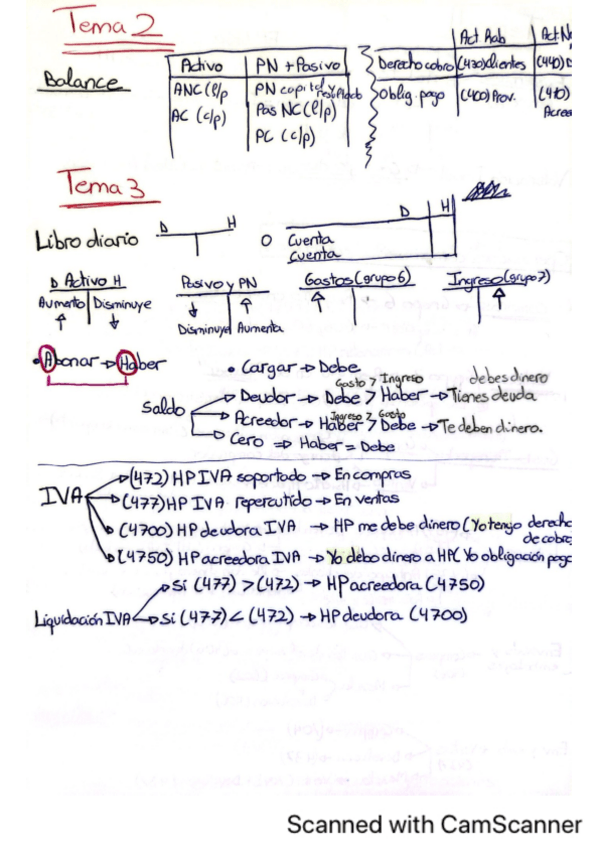 Tema 2
Act Hab Act N
Balance
Activo PN + Pasivo
Derecho cobro (430) clientes (440) D
ANC (l/p PN capital y
AC (c/p) Pas NC (l/p)
PC (c/p)
Oblig. pago (400) Prov. (410)
Acree
Tema 3
D H
Libro diario D H o Cuenta
Cuenta
D Activo H Pasivo y PN Gastos (grupo 6) Ingreso (grupo 7)
Aumento Disminuye
Disminuye Aumenta
• Abonar → Haber • Cargar → Debe
Gasto > Ingreso debes dinero
Saldo → Deudor → Debe > Haber → Tienes deuda
Ingreso > Gasto
→ Acreedor → Haber > Debe → Te deben dinero.
→ Cero ⇒ Haber = Debe
IVA → (472) HP IVA soportado → En compras
→ (477) HP IVA repercutido → En ventas
→ (4700) HP deudora IVA → HP me debe dinero (Yo tengo derecho
de cobro
→ (4750) HP acreedora IVA → Yo debo dinero a HP( Yo obligación pago
Liquidación IVA → Si (477) > (472) → HP acreedora (4750)
→ Si (477) < (472) → HP deudora (4700)
Scanned with CamScanner